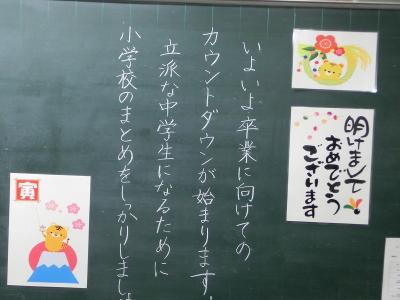 明けまして
おめでとう
ございます
いよいよ卒業に向けての
カウントダウンが始まります
立派な中学生になるために
小学校のまとめをしっかりしまし
寅